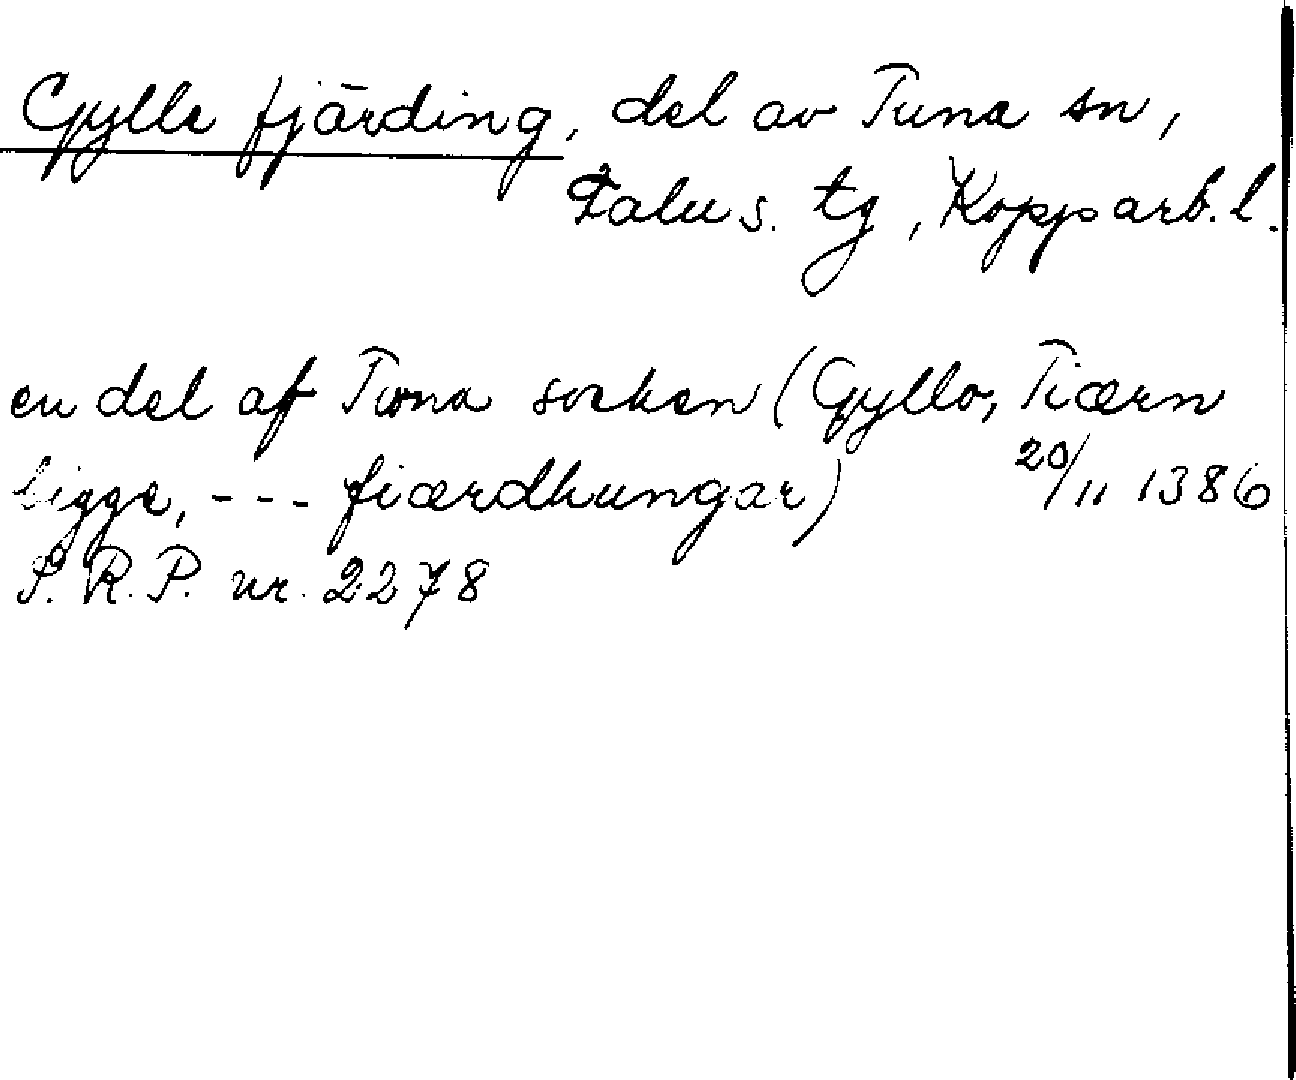 Gylle fjärding, del av Tuna sn,
Falu s. tg, Kopparb. l.
en del af Twna socken (Gyllo, Tiærn
bigge, --- fiærdhungar) 20/11 1386
S. R. P. nr. 2278